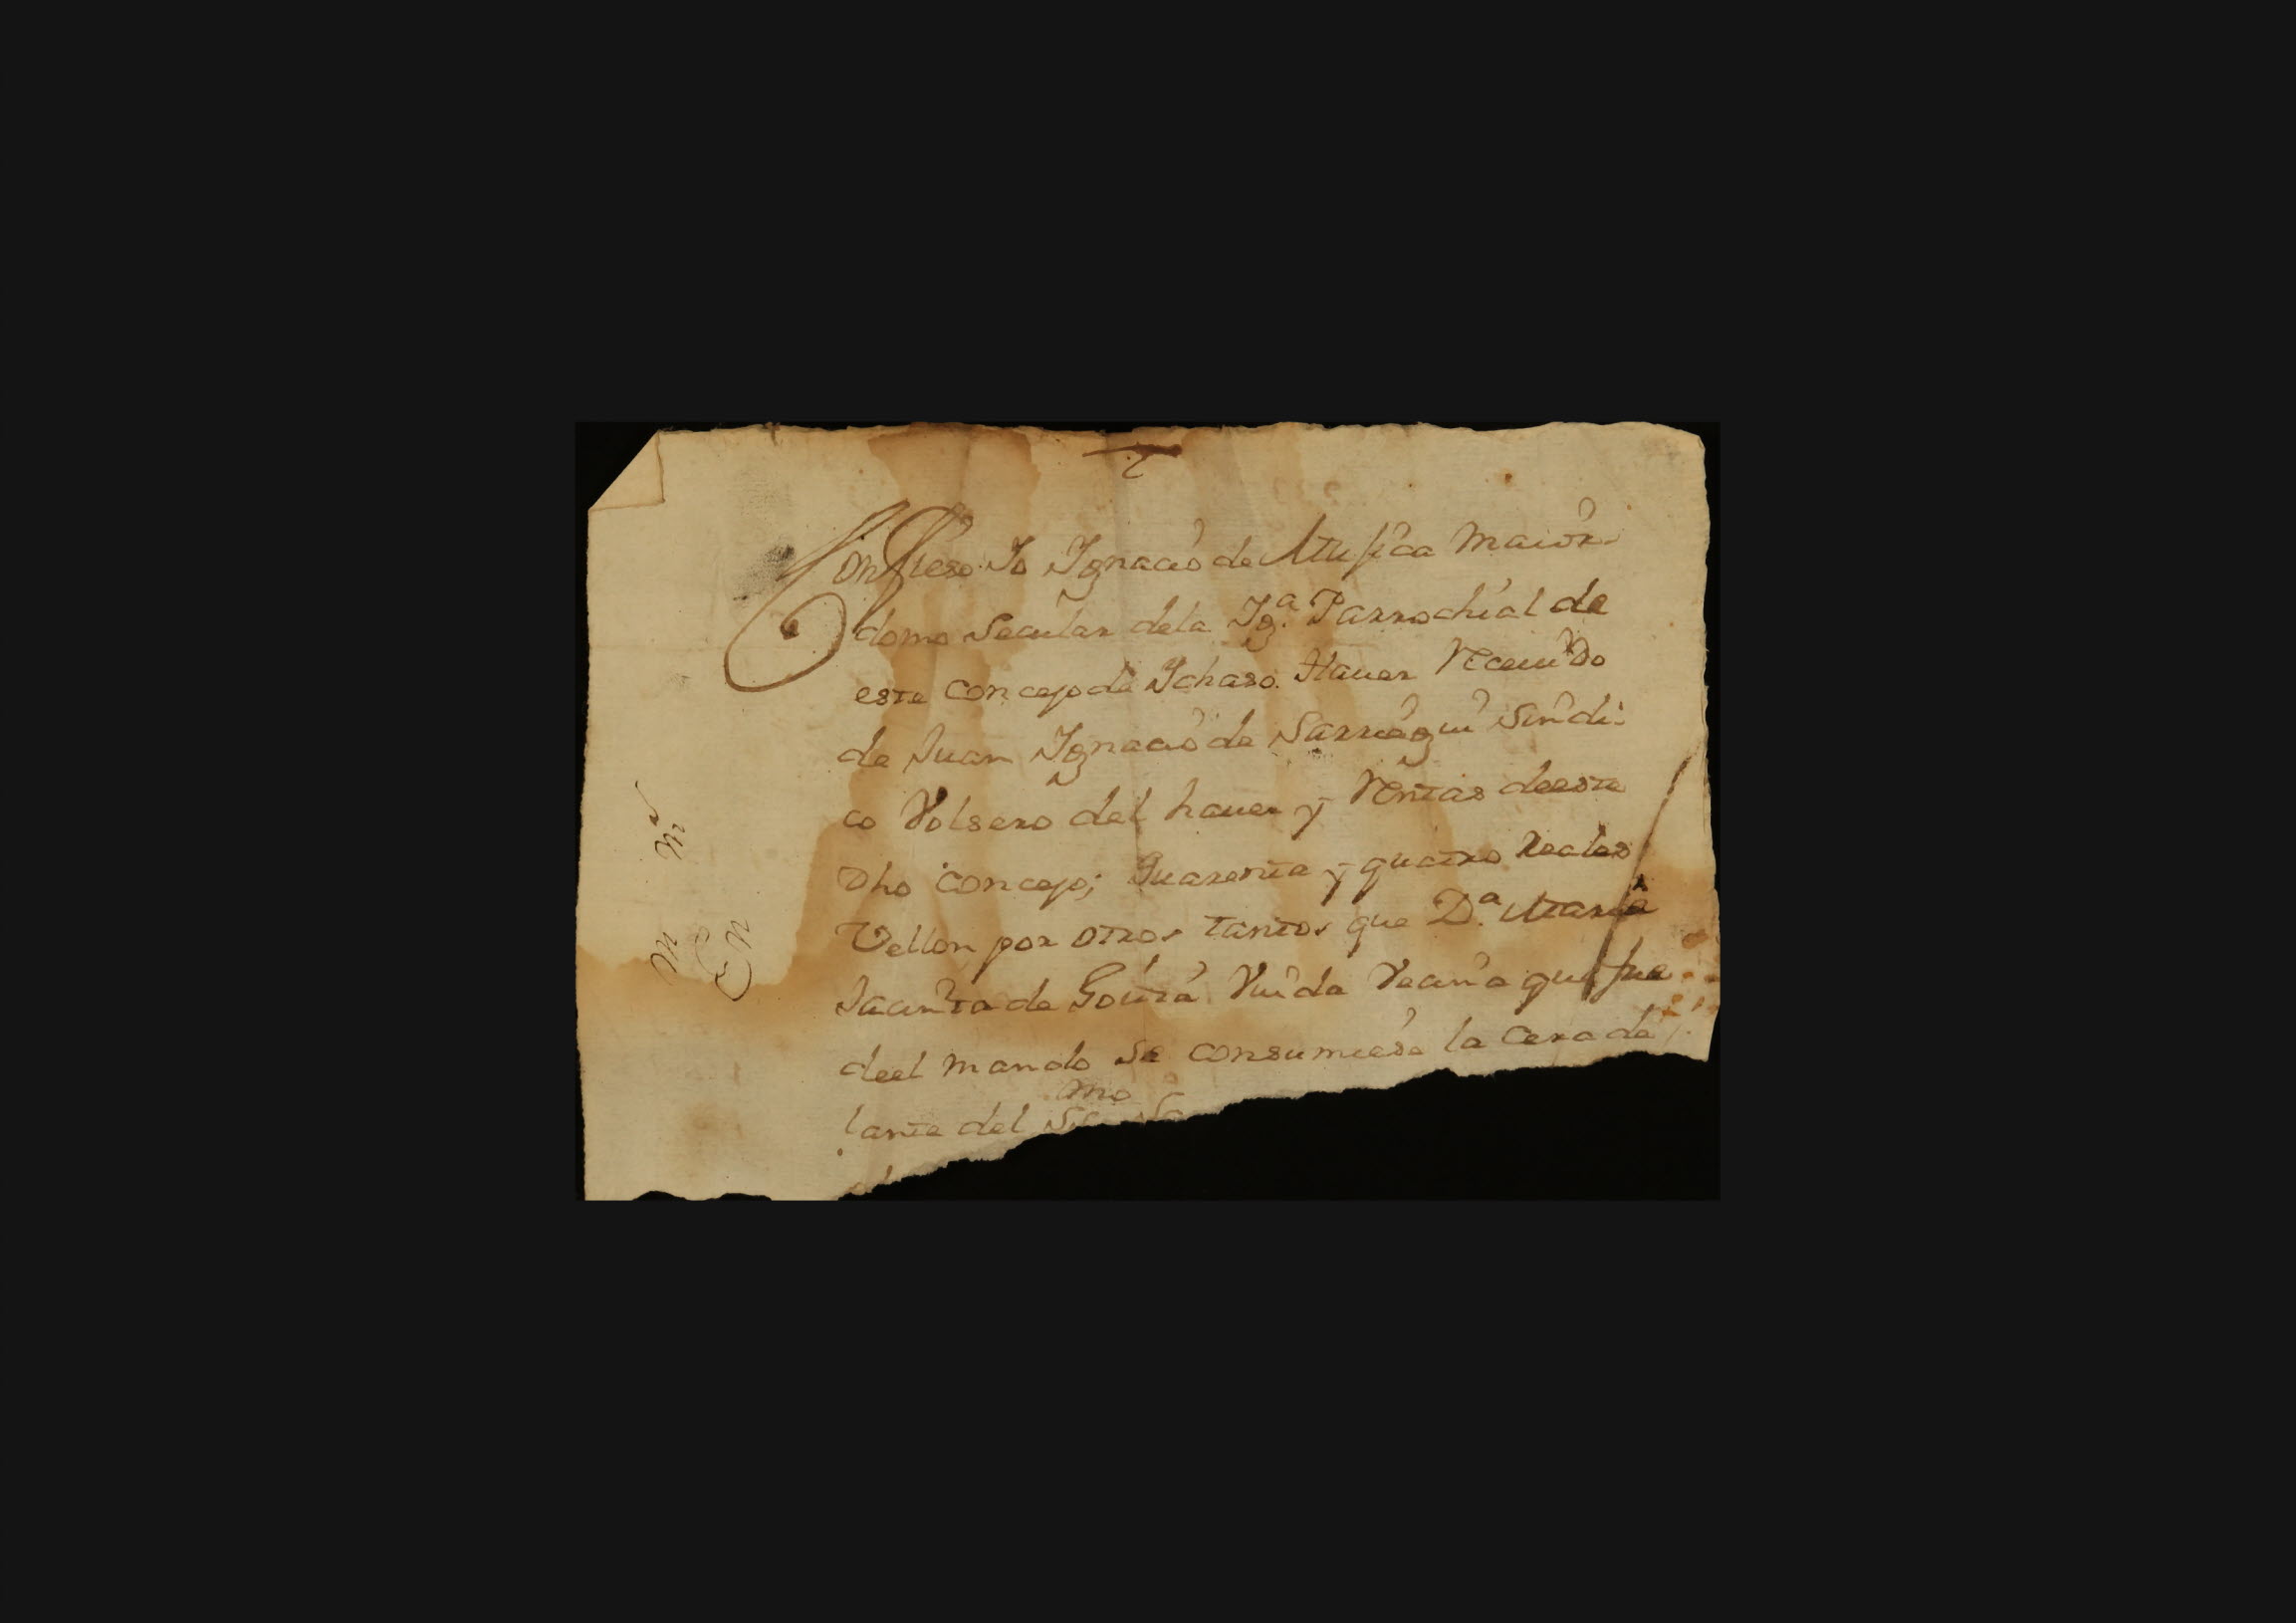 Confieso Io Ignacio de Musica Maior-
domo Secular dela Ig.ª Parrochial de
este concejo de Ichaso. Hauer Receuido
de Juan Ignacio de Sarriegui Sindi-
co Volsero del hauer y Rentas deeste
dho concejo; Quarenta y quatro Reales
Vellon por otros tantos que D.ª Maria
Jacinta de Goitia Viuda Vecina que fue
deel mando se consumiese la Cera de
lante del